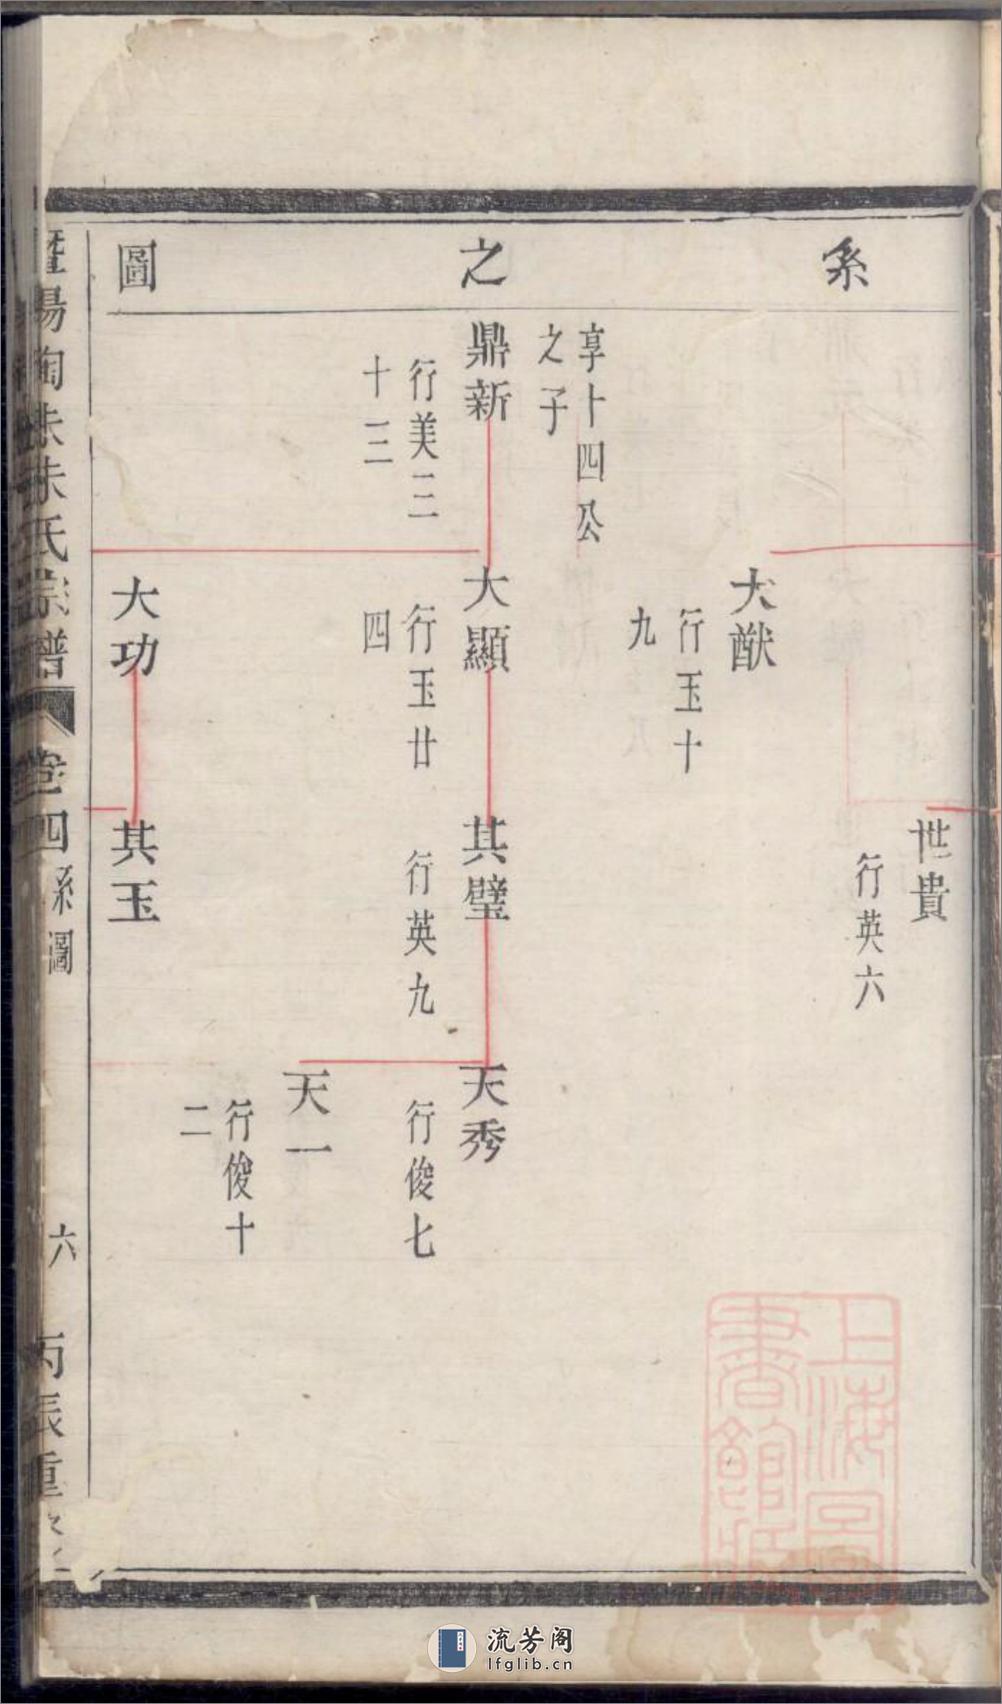 系之圖
世貴
行英六
大猷
行玉十
九
享卜四公
之子
鼎新
行美二
十三
大顯
行玉廿
四
其璧
行英九
天秀
行俊七
天一
行俊十
二
大功
其玉
暨陽陶朱朱氏宗譜
卷四
系圖
六
丙辰重
上海圖
書館藏
流芳阁
lfglib.cn